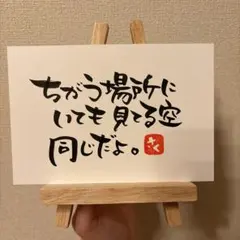 ちがう場所に
いても見てる空
同じだよ。